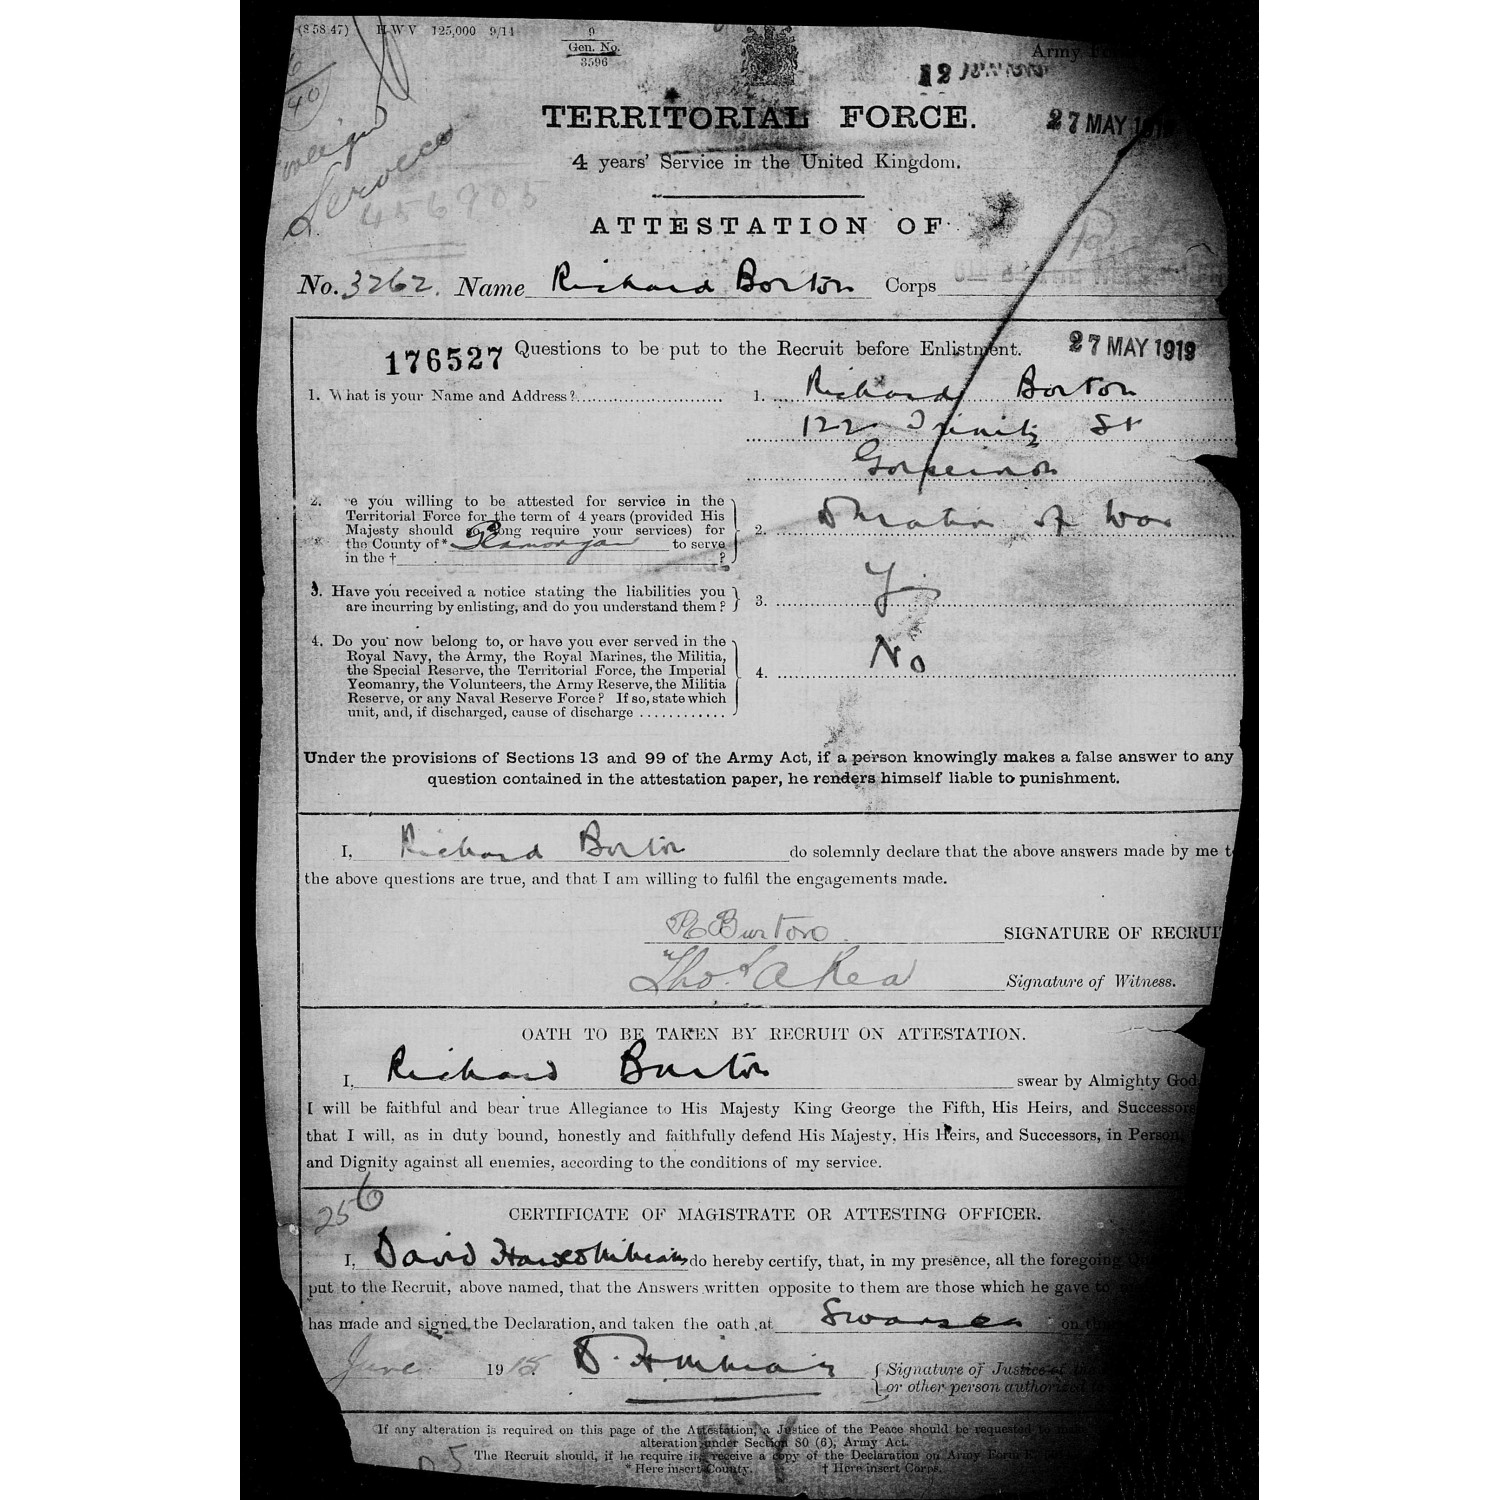 (8 58 47) H W V 125,000 9/14
9
Gen. No.
3596
Army
12
27 MAY 191
TERRITORIAL FORCE.
4 years' Service in the United Kingdom.
Service
456905
ATTESTATION OF
No. 3262. Name Richard Borton Corps
176527 Questions to be put to the Recruit before Enlistment. 27 MAY 1919
1. What is your Name and Address? 1. Richard Borton
122 Trinity St
Gorseinon
2. e you willing to be attested for service in the
Territorial Force for the term of 4 years (provided His
Majesty should so long require your services) for
the County of * Glamorgan to serve
in the † ?
2. Duration of War
3. Have you received a notice stating the liabilities you
are incurring by enlisting, and do you understand them?
3. Yes
4. Do you now belong to, or have you ever served in the
Royal Navy, the Army, the Royal Marines, the Militia,
the Special Reserve, the Territorial Force, the Imperial
Yeomanry, the Volunteers, the Army Reserve, the Militia
Reserve, or any Naval Reserve Force? If so, state which
unit, and, if discharged, cause of discharge
4. No
Under the provisions of Sections 13 and 99 of the Army Act, if a person knowingly makes a false answer to any
question contained in the attestation paper, he renders himself liable to punishment.
I, Richard Borton do solemnly declare that the above answers made by me t
the above questions are true, and that I am willing to fulfil the engagements made.
R Burton. SIGNATURE OF RECRUIT
Thos A Rea Signature of Witness.
OATH TO BE TAKEN BY RECRUIT ON ATTESTATION.
I, Richard Burton swear by Almighty God,
I will be faithful and bear true Allegiance to His Majesty King George the Fifth, His Heirs, and Successors
that I will, as in duty bound, honestly and faithfully defend His Majesty, His Heirs, and Successors, in Person,
and Dignity against all enemies, according to the conditions of my service.
256
CERTIFICATE OF MAGISTRATE OR ATTESTING OFFICER.
I, David do hereby certify, that, in my presence, all the foregoing
put to the Recruit, above named, that the Answers written opposite to them are those which he gave to
has made and signed the Declaration, and taken the oath at Swansea on
June 1915. {Signature of Justice of the
or other person authorized
If any alteration is required on this page of the Attestation, a Justice of the Peace should be requested to
alteration under Section 80 (6), Army Act.
The Recruit should, if he require it, receive a copy of the Declaration on Army Form
* Here insert County. † Here insert Corps.